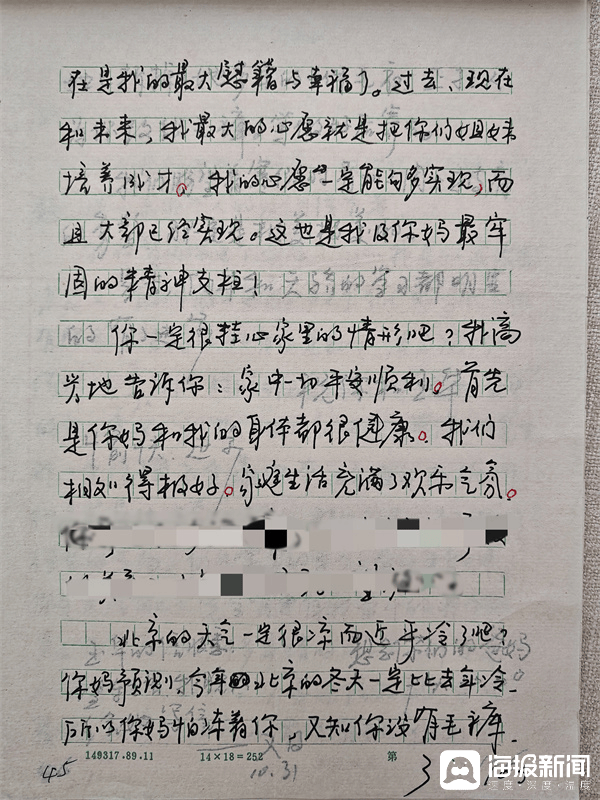 在是我的最大慰籍与幸福了。过去、现在
和未来，我最大的心愿就是把你们姐妹
培养成才。我的心愿一定能够多实现，而
且大部已经实现。这也是我及你妈最牢
固的精神支柱！
你一定很挂心家里的情形吧？我高
兴地告诉你：家中一切平安顺利。首先
是你妈和我的身体都很健康。我们
相处得极好。家庭生活充满了欢乐气氛。
北京的天气一定很凉而近乎冷了吧？
你妈预测，今年北京的冬天一定比去年冷。
所以你妈怕冻着你，又知你没有毛裤，
149317.89.11 14×18=252 第
45 10.31
海报新闻
速度·深度·温度